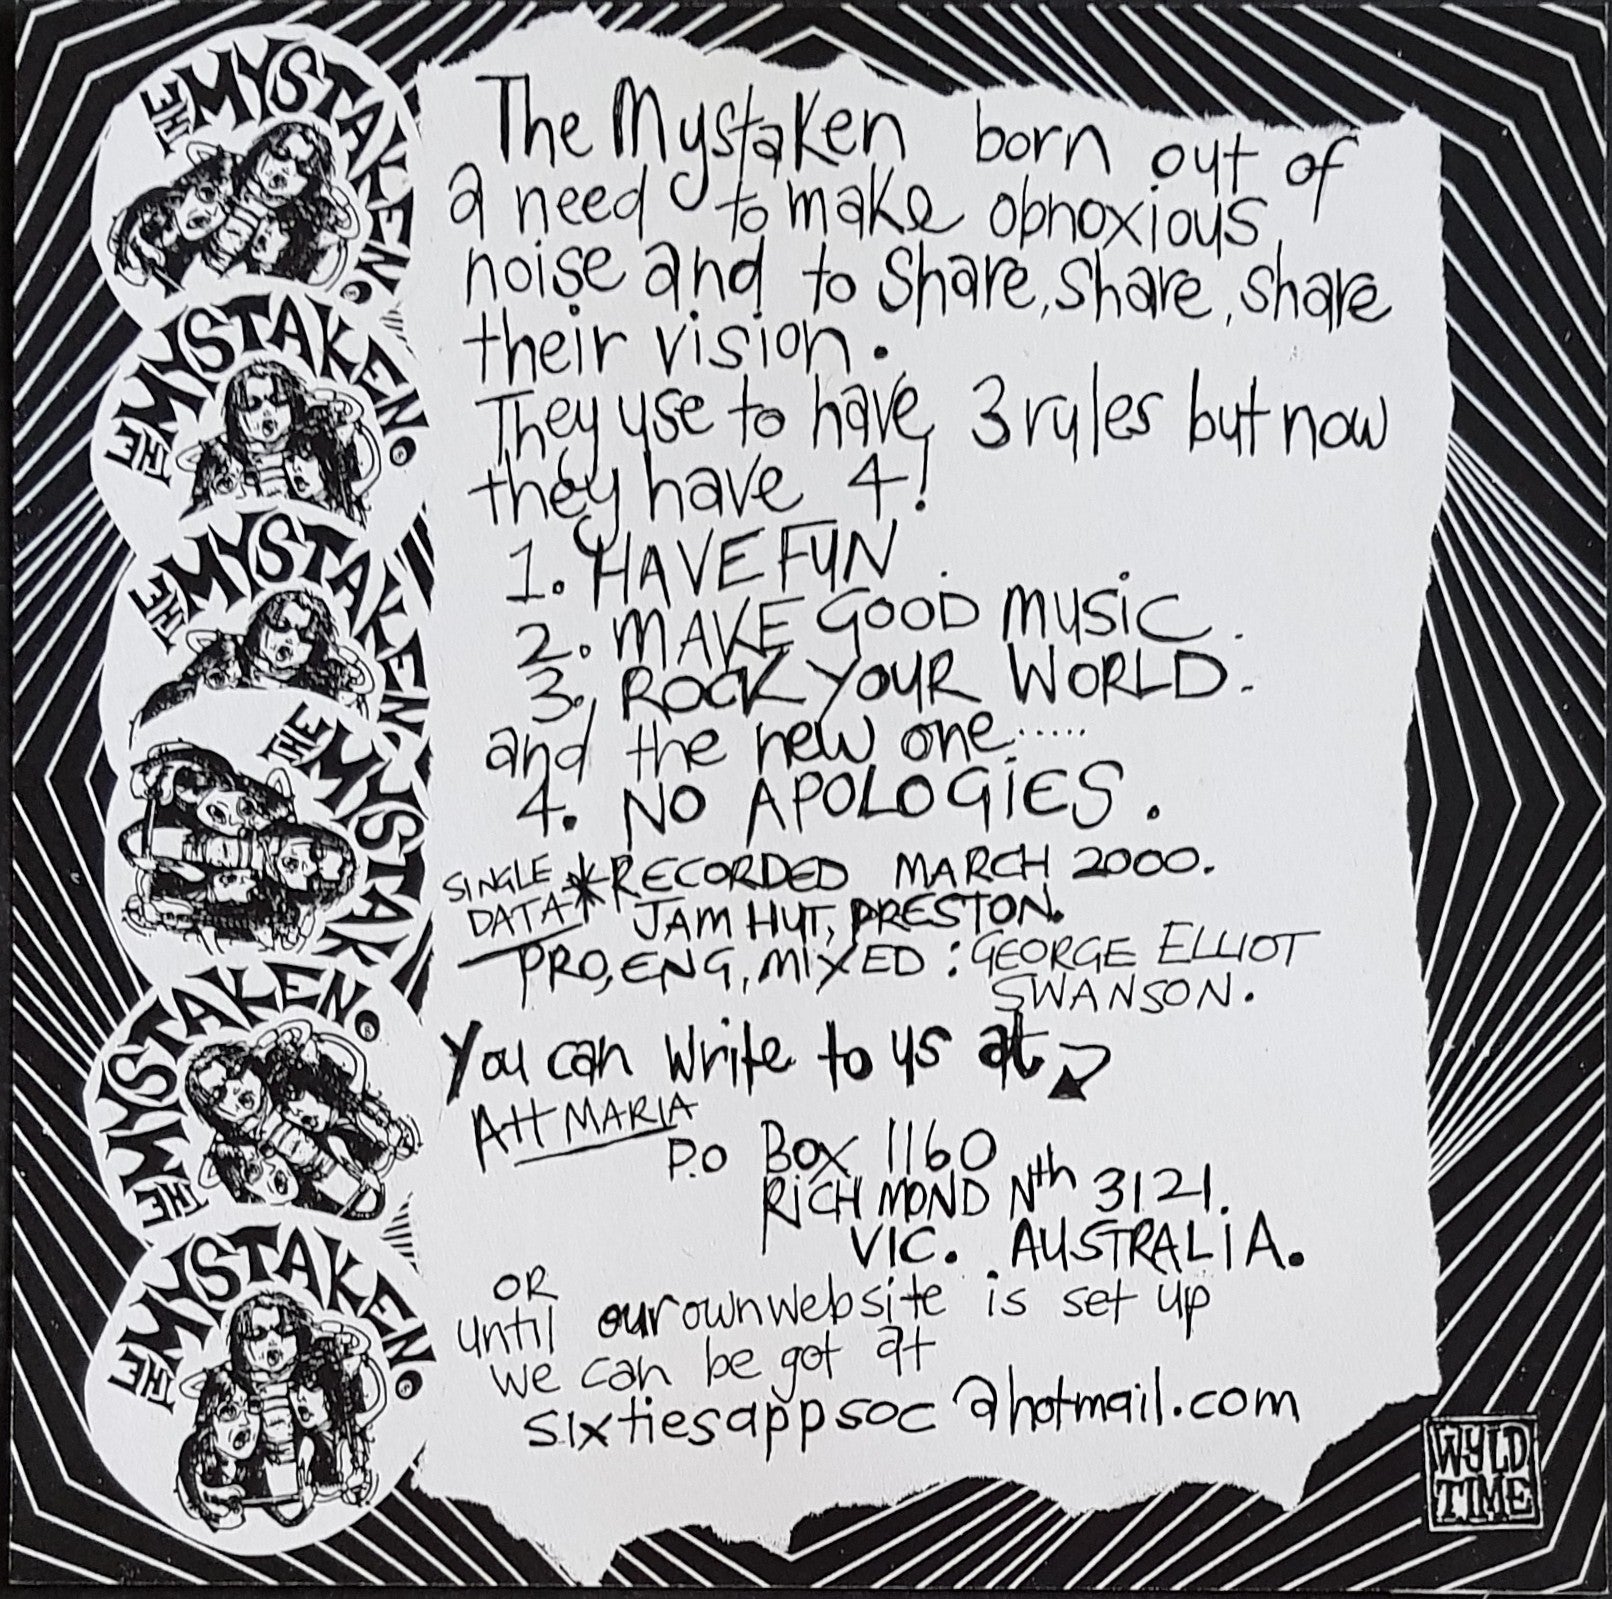 THE MYSTAKEN.
THE MYSTAKEN.
THE MYSTAKEN.
THE MYSTAK
THE MYSTAKEN.
THE MYSTAKEN.
The Mystaken born out of
a need to make obnoxious
noise and to share, share, share
their vision.
They use to have 3 rules but now
they have 4!
1. HAVE FUN
2. MAKE GOOD MUSIC.
3. ROCK YOUR WORLD.
and the new one.....
4. NO APOLOGIES.
SINGLE DATA * RECORDED MARCH 2000.
JAM HUT, PRESTON.
PRO, ENG, MIXED : GEORGE ELLIOT
SWANSON.
You can write to us at
Att MARIA
P.O Box 1160
RICHMOND Nth 3121.
VIC. AUSTRALIA.
OR
until our own website is set up
we can be got at
sixtiesappsoc@hotmail.com
WYLD
TIME